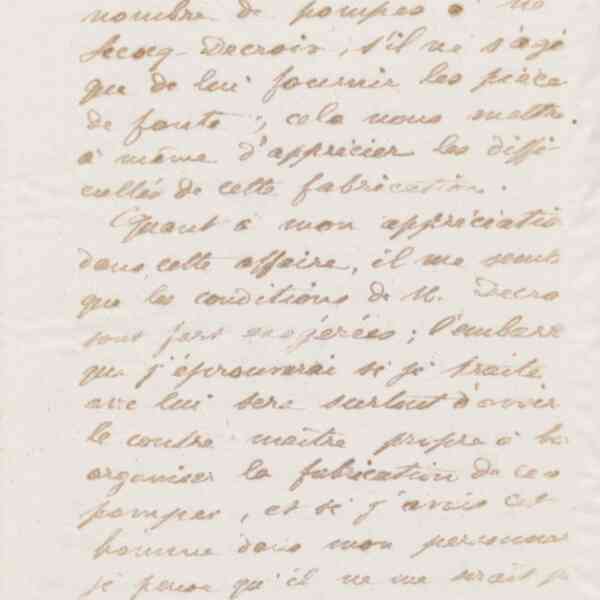 nombre de pompes à
Lecocq Decroix, s'il ne s'agi
que de lui fournir les pièce
de fonte ; cela nous mettra
à même d'apprécier les diffi-
cultés de cette fabrication.
Quant à mon appréciatio
dans cette affaire, il me semb
que les conditions de M. Decro
sont fort exagérées ; l'embarr
que j'éprouverai si je traite
avec lui sera surtout d'avoir
le contre maître propre à b
organiser la fabrication de ces
pompes, et si j'avais cet
homme dans mon personne
je pense qu'il ne me serait p